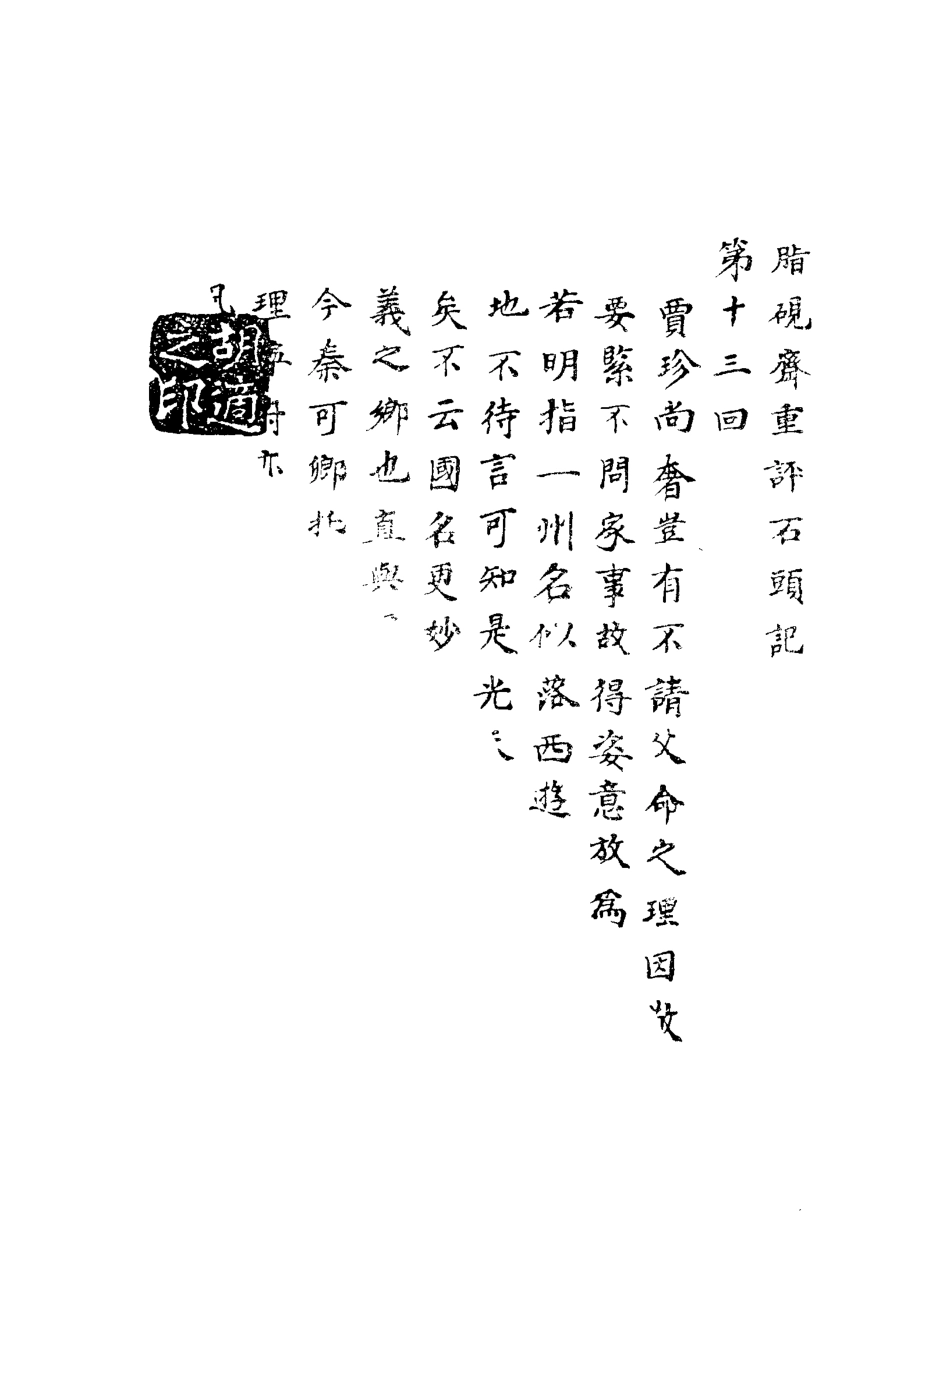 脂硯齋重評石頭記
第十三回
賈珍尚奢豈有不請父命之理因敬
要緊不問家事故得姿意放為
若明指一州名似落西遊
地不待言可知是光
矣不云國名更妙
義之鄉也直與
今秦可卿托
理寧府亦
凡
胡適之印